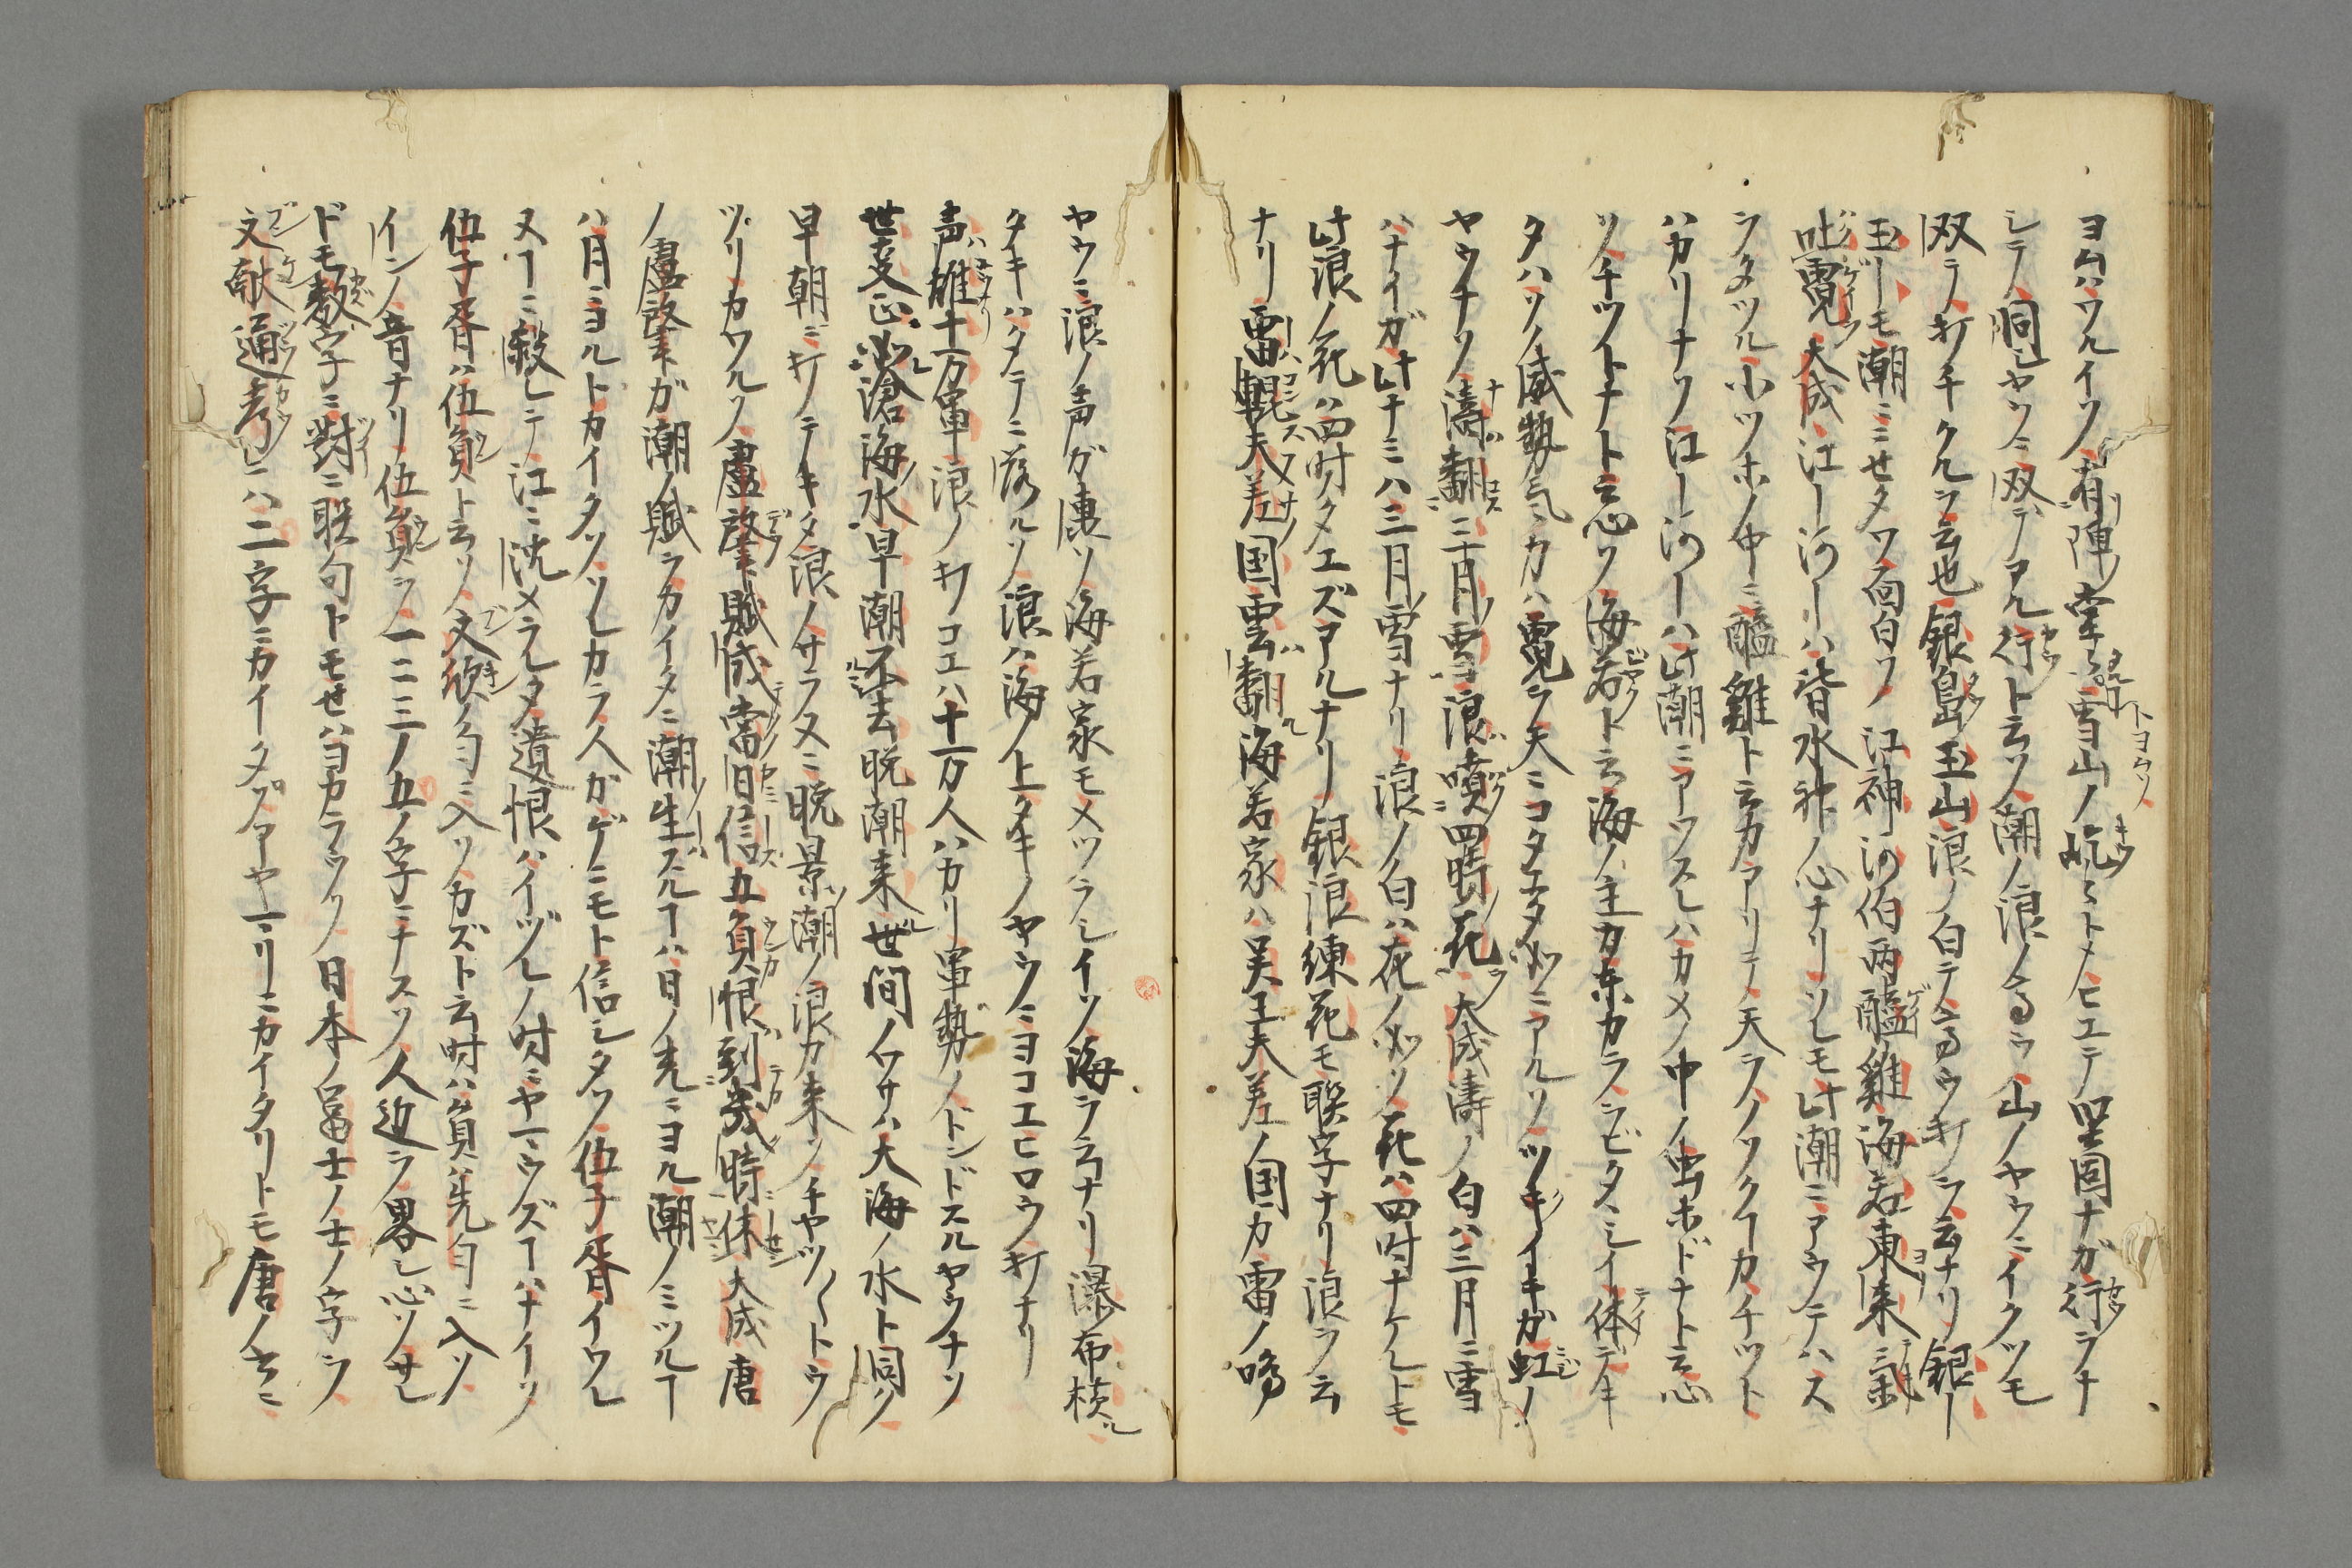 ヨクハツルイソ有陣堂々雪山ノ屹々トメヒエテ堅固ナガ行ヲナ
シテ洞シヤウニ双テアル行ト云ソ潮ノ浪ノ高ヲ山ノヤウニイクツモ
双テ打チクルヲ云也銀島玉山浪ノ白テ高ウ打ヲ云ナリ銀ー
玉ーモ潮ニミセタソ面白ソ江神河伯両醯雞海若東来気
吐霓大成江ー河ーハ皆水神ノ心ナリソレモ此潮ニアウテハス
ヲタツル小ツホノ中ニ醯雞ト云カアリテ天ヲノソクーカチツト
ハカリナソ江ー河ーハ此潮ニアーツスレハカメノ中ノ虫ホドナト云心
ソチツトナト云心ソ海若ト云海ノ主カ東カラヲビタヽシイ体デキ
タハソノ威勢気ニカハ霓ヲ天ニコタエタ必ニアルソツキノイキガ虹ノ
ヤウナソ濤翻三月雪浪噴四時花大成濤ノ白ハ三月ニ雪
ハナイガ此ナミハ三月雪ナリ浪ノ白ハ花ノ必ソ花ハ四時ナケレトモ
此浪ノ花ハ四時タエズアルナリ銀浪練花モ聯字ナリ浪ヲ云
ナリ雷輥夫差国雲翻海若家ハ呉王夫差ノ国カ雷ノ鳴
ヤウニ浪ノ声ガ凄ソ海若家モメツラシイソ海ヲ云ナリ瀑布横
タキハタテニ落ルソ浪ハ海ノ上タキノヤウニヨコエヒロウ打ナリ
声雄十万軍浪ノ打コエハ十万人ハカリ軍勢ノトンドスルヤウナソ
世変正必滄海水早潮不去晩潮来世間ノワサハ大海ノ水ト同ソ
早朝ニ打テキタ浪ノサラヌニ晩景潮ノ浪カ来ソチヤツ〳〵トウ
ツリカワルソ盧肇賦成當旧信五負恨到幾時休大成唐
ノ盧肇ガ潮ノ賦ヲカイタニ潮生ズルーハ日ノ光ニヨル潮ノミツルー
ハ月ニヨルトカイタソソレカラ人ガゲニモト信シタソ伍子胥イウレ
ヌーニ殺シテ江ニ沈メラレタ遺恨ハイヅレノ時ニヤーウズーハナイソ
伍子胥ハ伍員ト云ソ文頌ノ勻ニ入ソカズト云時ハ員ハ先勻ニ入ソ
インノ音ナリ伍員ヲ一二三ノ五ノ字ニナスソ人近ヲ畧シ心ソサレ
ドモ数字ニ對ニ聡句トモセハヨカラウソ日本ノ冨士ノ士ノ字ヲ
文献通考ニハ二字ニカイタソアヤーリニカイタリトモ唐ノ云ニ